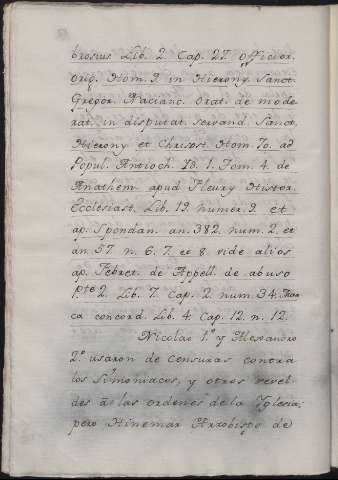 brosius Lib. 2. Cap. 27. officior.
Orig. Hom. 9. in Hierony. Sanct.
Gregor. Nacianc. Orat. de mode
rat. in disputat. servand. Sanct.
Hierony. et Chrisost. Hom. 70. ad
Popul. Antioch. Id. 1. Tom. 4. de
Anathem. apud Fleury Histor.
Ecclesiast. Lib. 19. numer. 9. et
ap. Spondan. an. 382. num. 2. et
an. 57. n. 6. 7. et 8. vide alios
ap. Febret. de Appell. de abuso
pte 1. 2. Lib. 7. Cap. 2. num. 34.
ca concord. Lib. 4. Cap. 12. n. 12.
Nicolao 1.º y Alessandro
2.º usaron de censuras contra
los Simoniacos, y otros revel-
des a las ordenes de la Iglesia;
pero Hinemar Arzobispo de